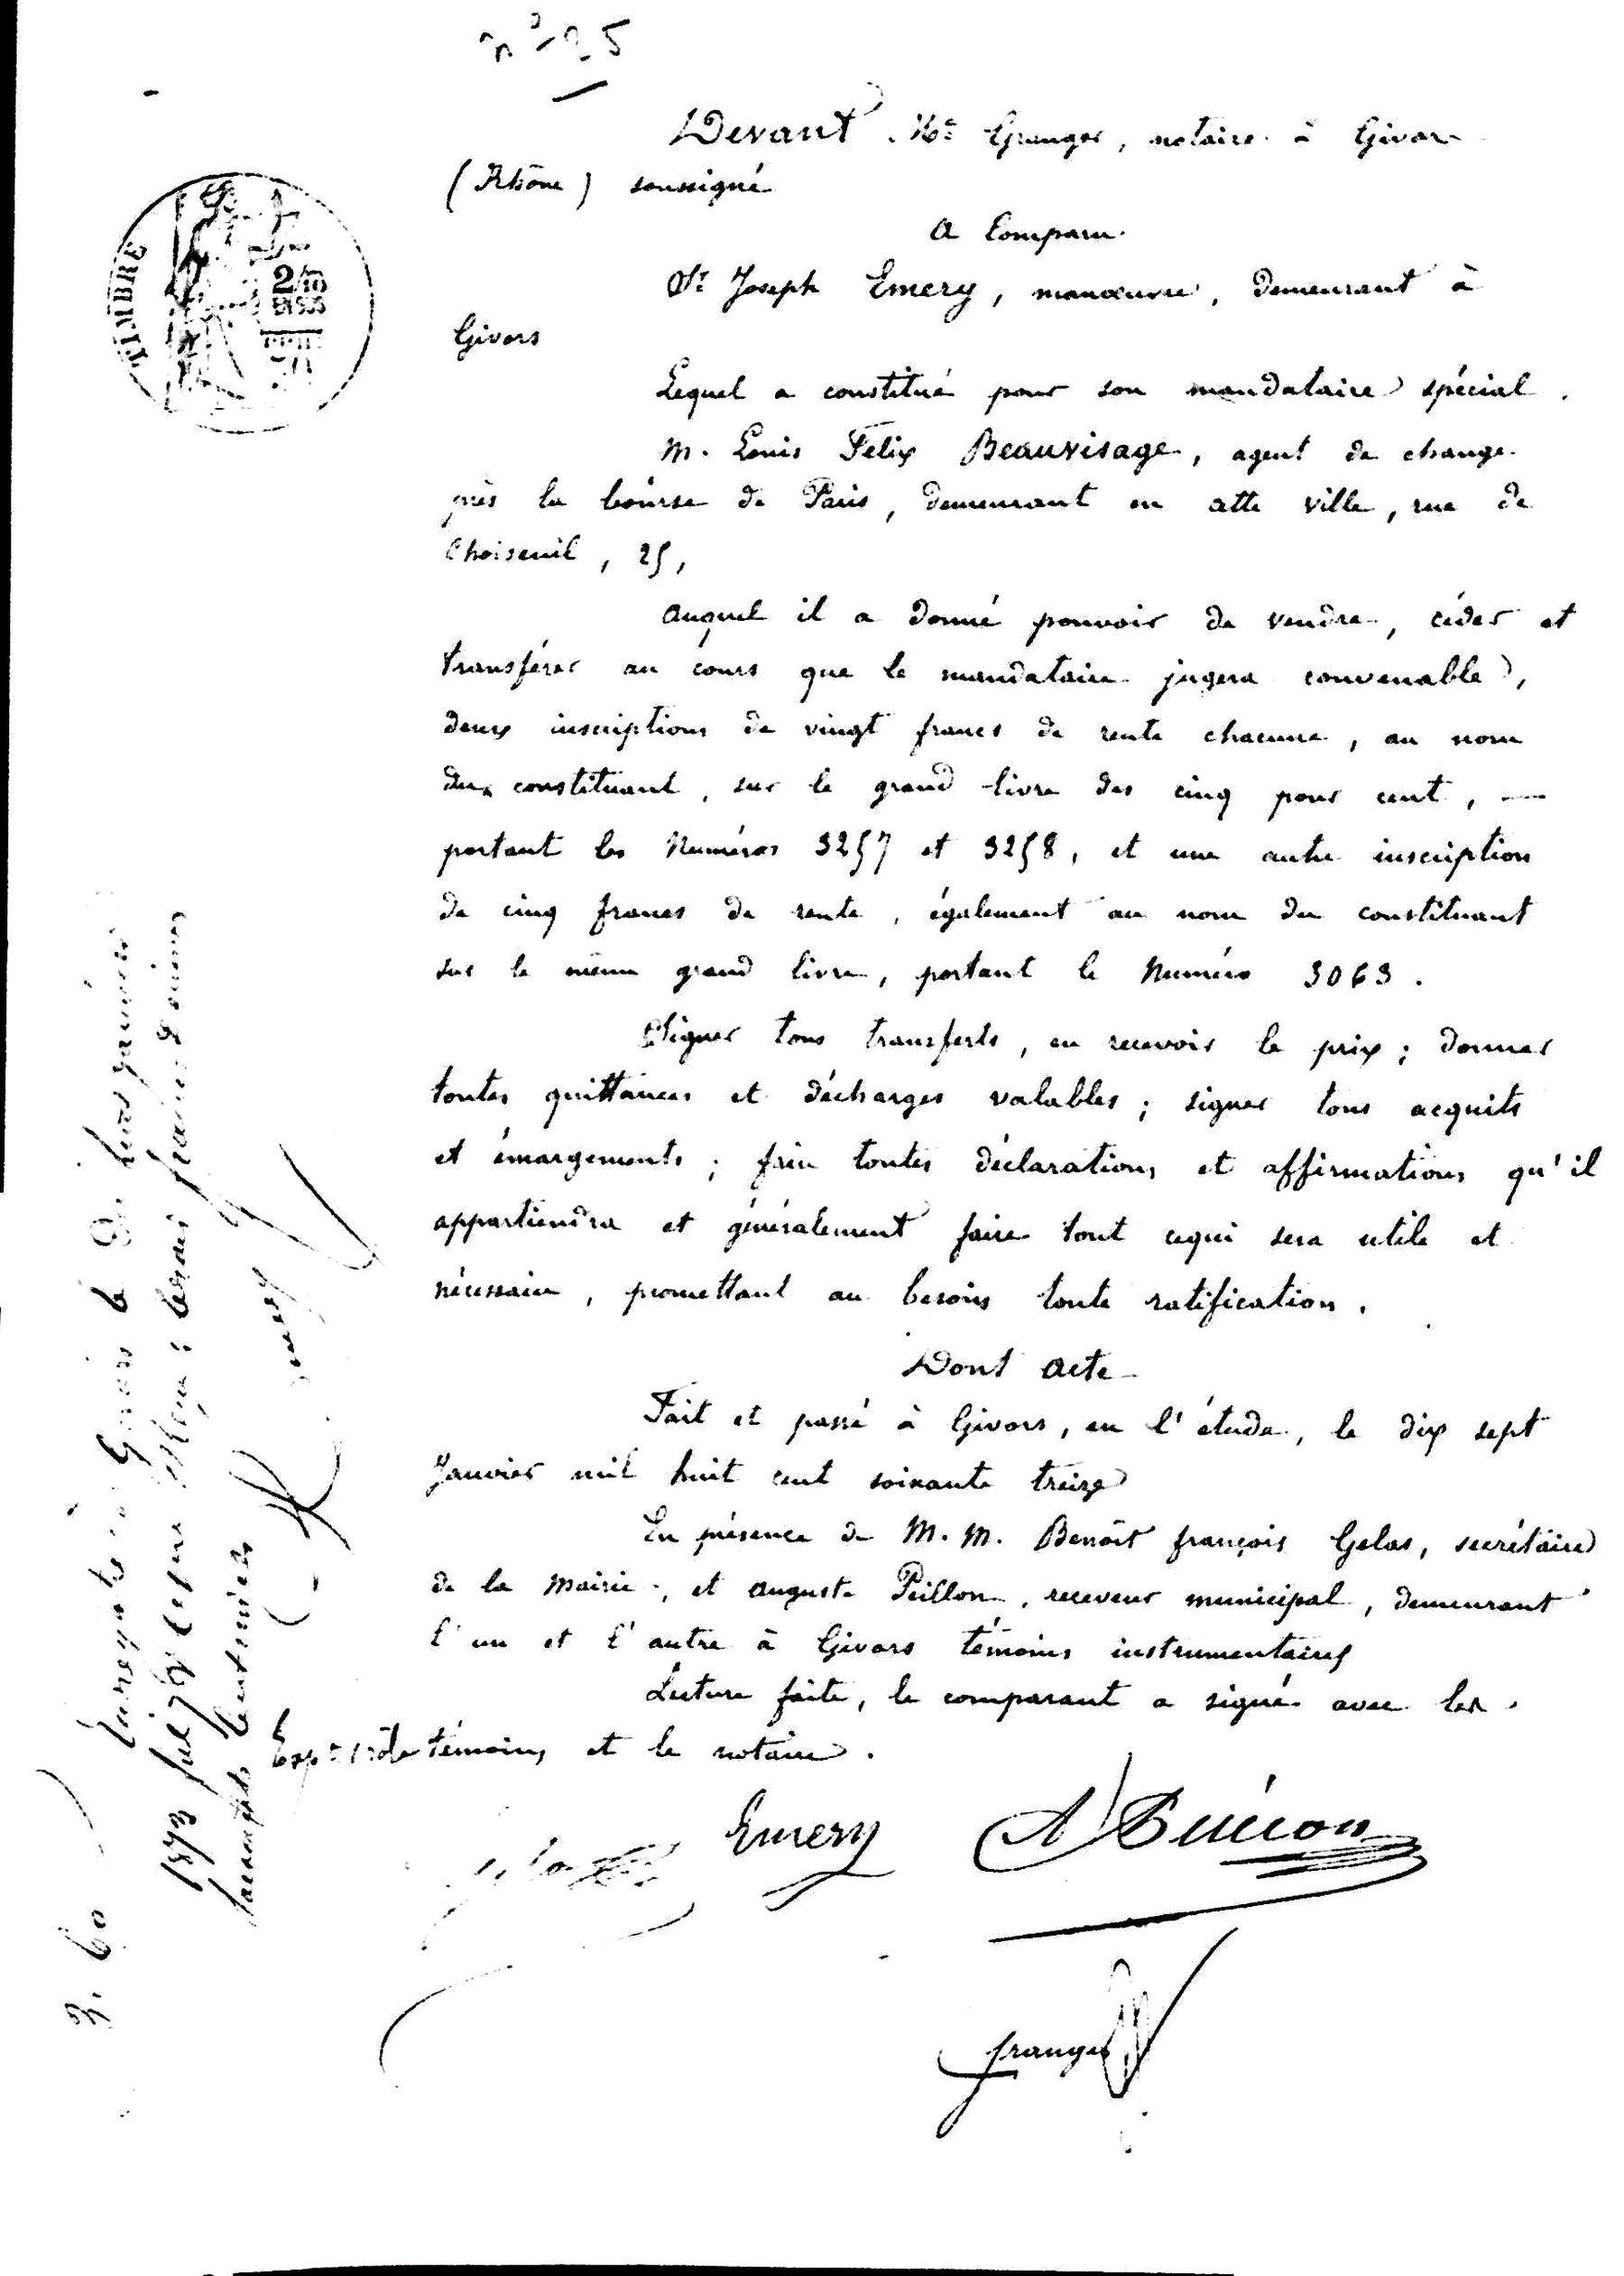 n° 25
Devant Me Granger, notaire à Givors
(Rhône) soussigné
A Comparu
Sr Joseph Emery, manœuvre, demeurant à
Givors
Lequel a constitué pour son mandataire spécial
M. Louis Félix Beauvisage, agent de change
près la bourse de Paris, demeurant en cette ville, rue de
Choiseuil, 25,
Auquel il a donné pouvoir de vendre, céder et
transférer au cours que le mandataire jugera convenable,
deux inscriptions de vingt francs de rente chacune, au nom
du constituant, sur le grand livre des cinq pour cent, —
portant les Numéros 3257 et 3258, et une autre inscription
de cinq francs de rente, également au nom du constituant
sur le même grand livre, portant le Numéro 3063.
Signer tous transferts, en recevoir le prix; donner
toutes quittances et décharges valables; signer tous acquits
et émargements; faire toutes déclarations et affirmations qu'il
appartiendra et généralement faire tout cequi sera utile et
nécessaire, promettant au besoin toute ratification.
Dont acte
Fait et passé à Givors, en l'étude, le dix sept
Janvier mil huit cent soixante treize
En présence de M. M. Benoît françois Gelas, secrétaire
de la Mairie, et Auguste Peillon, receveur municipal, demeurant
l'un et l'autre à Givors témoins instrumentaires
Lecture faite, le comparant a signé avec les
témoins et le notaire.
Emery
granger
TIMBRE
Givors le
1873
francs
centimes
3. 60